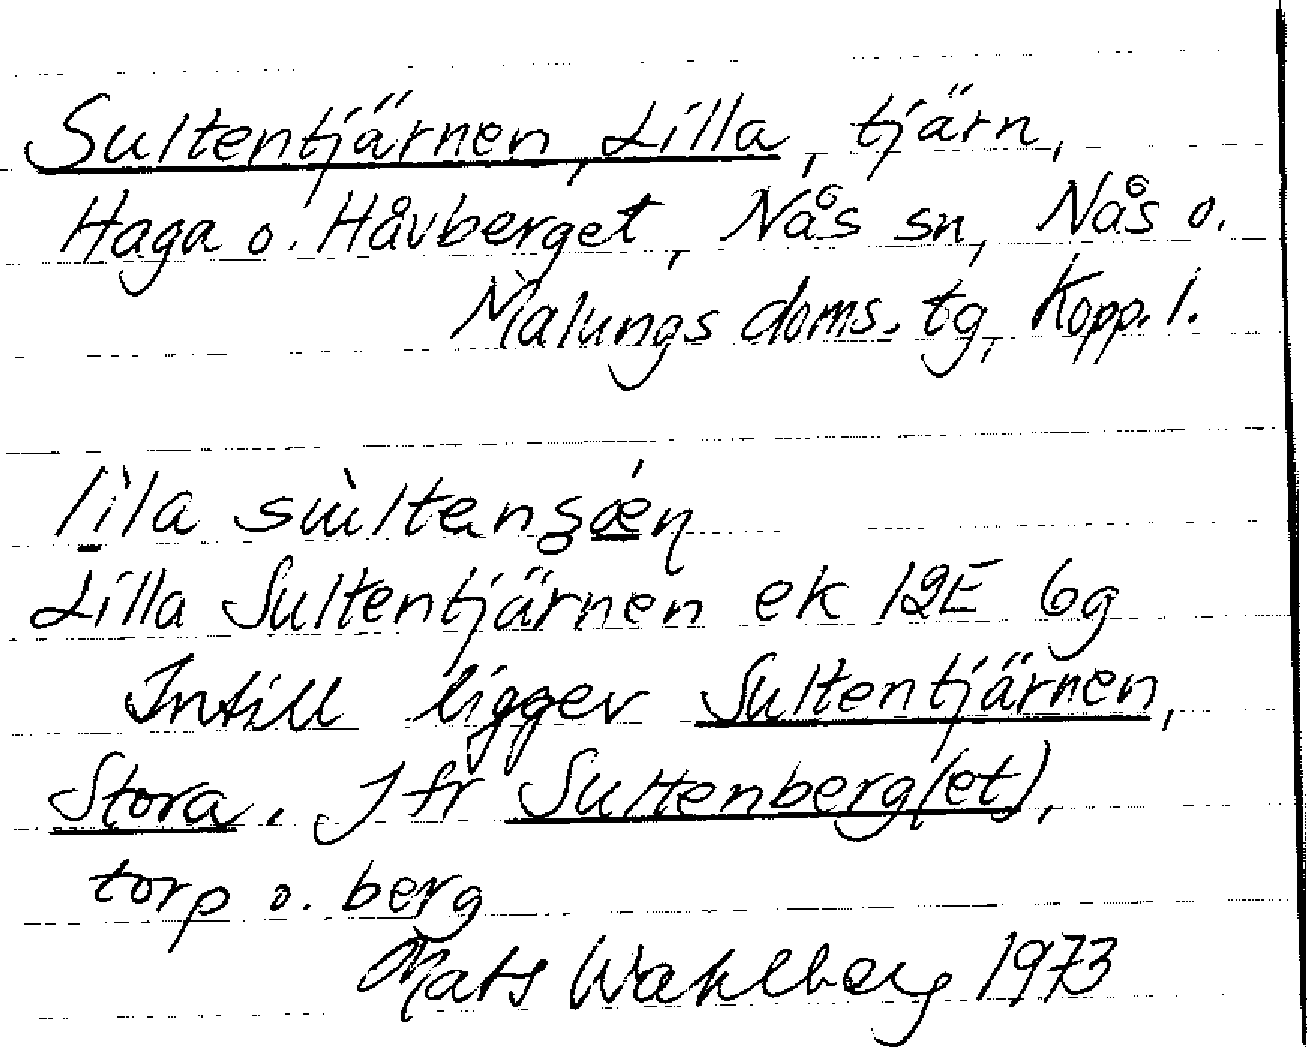 Sultentjärnen, Lilla, tjärn,
Haga o. Håvberget, Nås sn, Nås o.
Malungs doms. tg, Kopp. l.
Lilla Sultentjärnen ek 12E 6g
Intill ligger Sultentjärnen,
Stora. Jfr Sultenberg(et),
torp o. berg
Mats Wahlberg 1973